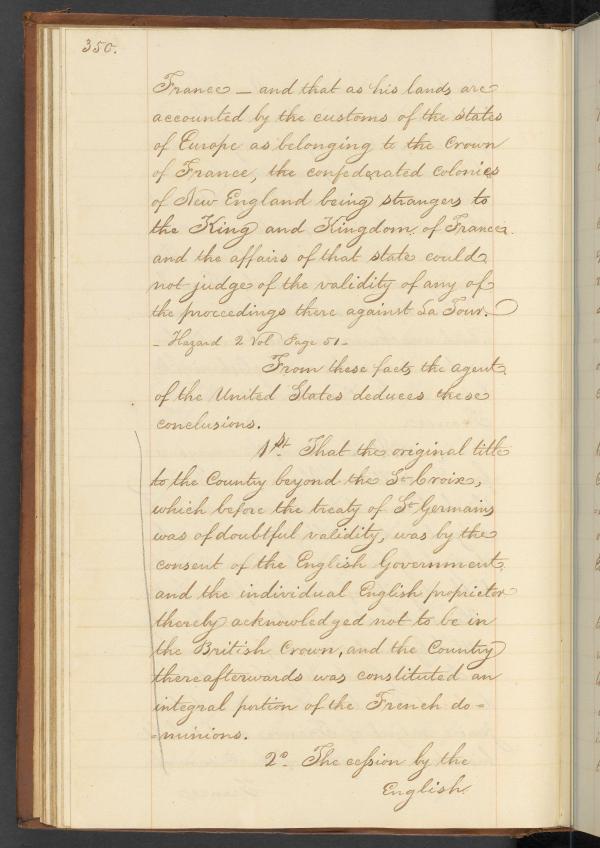 350.
France — and that as his lands are
accounted by the customs of the states
of Europe as belonging to the Crown
of France, the confederated colonies
of New England being strangers to
the King and Kingdom, of France.
and the affairs of that state could
not judge of the validity of any of
the proceedings there against La Tour.
- Hazard 2 Vol Page 51 -
From these facts the agent
of the United States deduces these
conclusions.
1st. That the original title
to the Country beyond the St Croix,
which before the treaty of St Germains
was of doubtful validity, was by the
consent of the English Government,
and the individual English proprietor
thereby acknowledged not to be in
the British Crown, and the Country
thereafterwards was constituted an
integral portion of the French do=
=minions.
2o. The cession by the
English